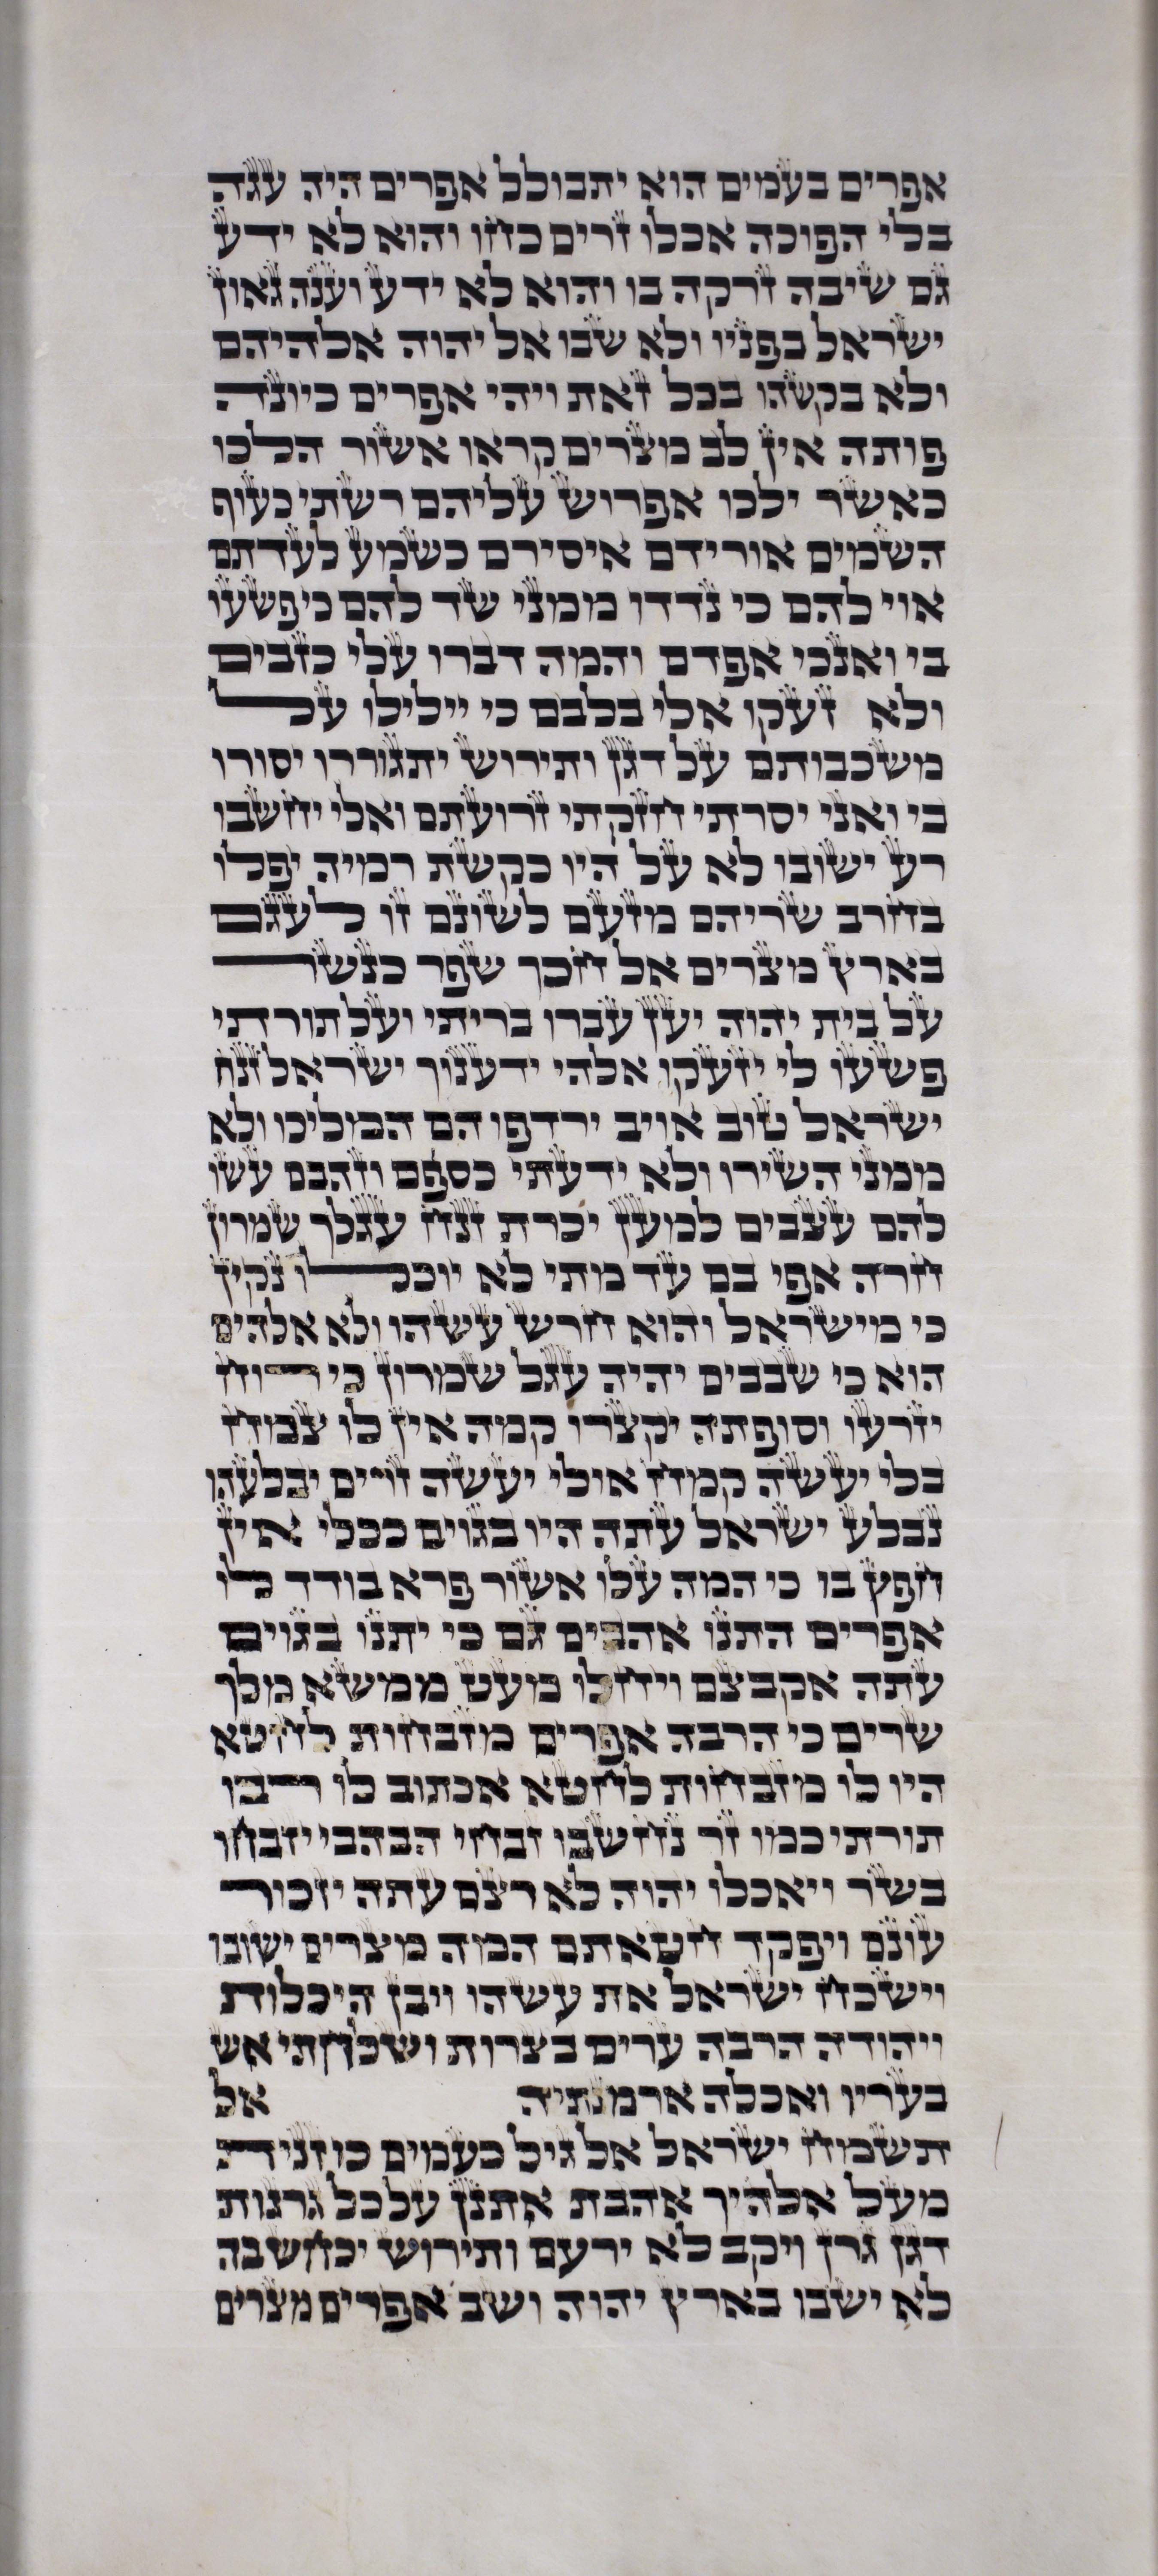 אפרים בעמים הוא יתבולל אפרים היה עגה
בלי הפוכה אכלו זרים כחו והוא לא ידע
גם שיבה זרקה בו והוא לא ידע וענה גאון
ישראל בפניו ולא שבו אל יהוה אלהיהם
ולא בקשהו בכל זאת ויהי אפרים כיונה
פותה אין לב מצרים קראו אשור הלכו
כאשר ילכו אפרוש עליהם רשתי כעוף
השמים אורידם איסירם כשמע לעדתם
אוי להם כי נדדו ממני שד להם כי פשעו
בי ואנכי אפדם והמה דברו עלי כזבים
ולא זעקו אלי בלבם כי יילילו על
משכבותם על דגן ותירוש יתגוררו יסורו
בי ואני יסרתי חזקתי זרועתם ואלי יחשבו
רע ישובו לא על היו כקשת רמיה יפלו
בחרב שריהם מזעם לשונם זו לעגם
בארץ מצרים אל חכך שפר כנשר
על בית יהוה יען עברו בריתי ועל תורתי
פשעו לי יזעקו אלהי ידענוך ישראל זנח
ישראל טוב אויב ירדפו הם המליכו ולא
ממני השירו ולא ידעתי כספם וזהבם עשו
להם עצבים למען יכרת זנח עגלך שמרון
חרה אפי בם עד מתי לא יוכלו נקין
כי מישראל והוא חרש עשהו ולא אלהים
הוא כי שבבים יהיה עגל שמרון כי רוח
יזרעו וסופתה יקצרו קמה אין לו צמח
בלי יעשה קמח אולי יעשה זרים יבלעהו
נבלע ישראל עתה היו בגוים ככלי אין
חפץ בו כי המה עלו אשור פרא בודד לו
אפרים התנו אהבים גם כי יתנו בגוים
עתה אקבצם ויחלו מעט ממשא מלך
שרים כי הרבה אפרים מזבחות לחטא
היו לו מזבחות לחטא אכתוב לו רבו
תורתי כמו זר נחשבו זבחי הבהבי יזבחו
בשר ויאכלו יהוה לא רצם עתה יזכור
עונם ויפקד חטאתם המה מצרים ישובו
וישכח ישראל את עשהו ויבן היכלות
ויהודה הרבה ערים בצרות ושלחתי אש
בעריו ואכלה ארמנתיה אל
תשמח ישראל אל גיל כעמים כי זנית
מעל אלהיך אהבת אתנן על כל גרנות
דגן גרן ויקב לא ירעם ותירוש יכחש בה
לא ישבו בארץ יהוה ושב אפרים מצרים